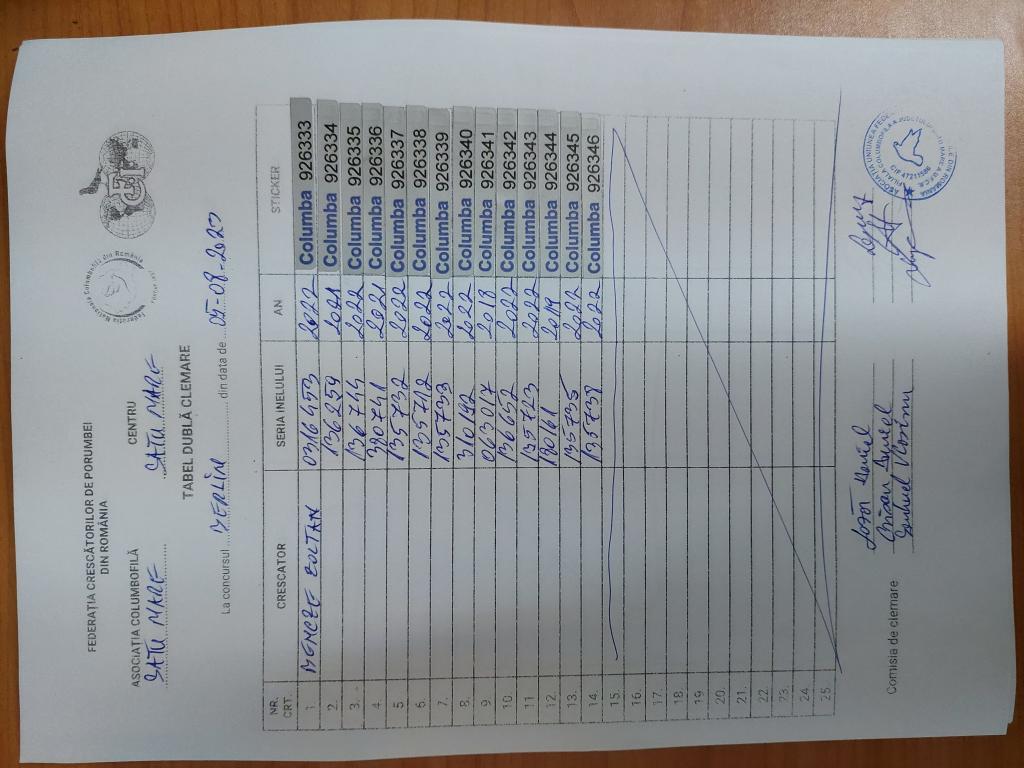 FEDERAȚIA CRESCĂTORILOR DE PORUMBEI
DIN ROMÂNIA
ASOCIAȚIA COLUMBOFILĂ
CENTRU
SATU MARE
SATU MARE
TABEL DUBLĂ CLEMARE
La concursul BERLIN din data de 05-08-2023
NR. CRT. CRESCATOR SERIA INELULUI AN STICKER
1. BENCZE ZOLTAN 0316453 2022 Columba 926333
2. 136259 2021 Columba 926334
3. 136744 2022 Columba 926335
4. 390741 2021 Columba 926336
5. 135732 2022 Columba 926337
6. 135712 2022 Columba 926338
7. 135733 2022 Columba 926339
8. 310192 2022 Columba 926340
9. 063017 2018 Columba 926341
10. 136652 2022 Columba 926342
11. 135723 2022 Columba 926343
12. 190161 2019 Columba 926344
13. 135735 2022 Columba 926345
14. 135738 2022 Columba 926346
15.
16.
17.
18.
19.
20.
21.
22.
23.
24.
25.
Comisia de clemare
CIF 47211586